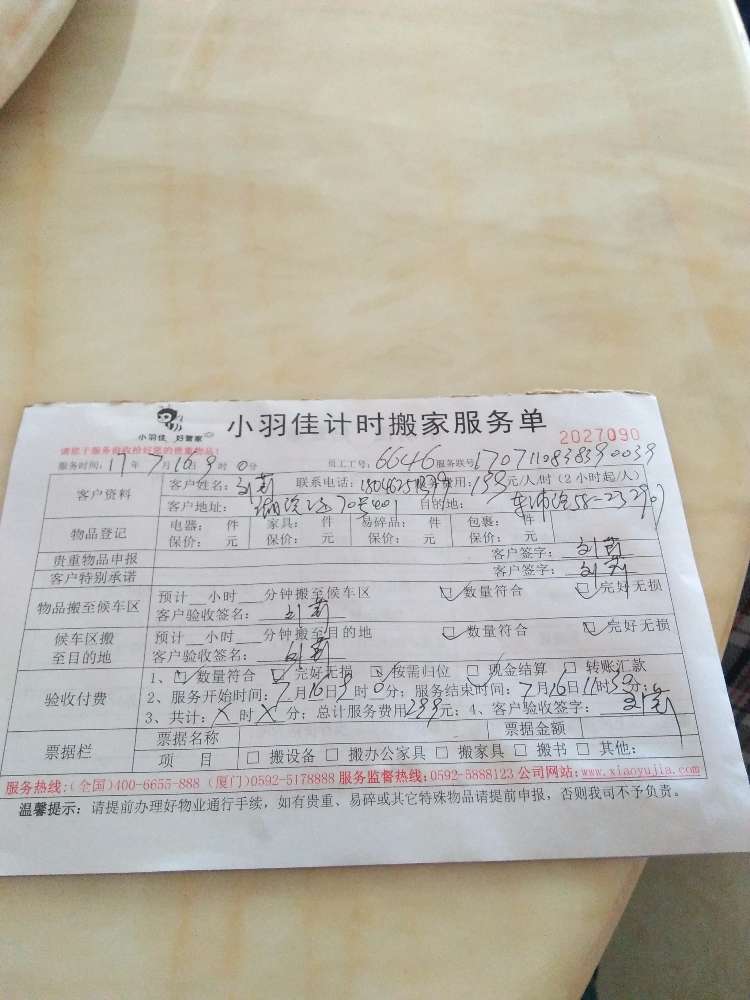 小羽佳 好管家
小羽佳计时搬家服务单
2027090
请您于服务前收拾好您的贵重物品!
服务时间: 17年7月16日9时0分 员工工号: 6646 服务联号: 1707110838390039
客户资料
客户姓名: 刘莉 联系电话: 费用: 199元/人/时(2小时起/人)
客户地址: 70号401 目的地: 58-232907
物品登记
电器: 件 家具: 件 易碎品: 件 包裹: 件
保价: 元 保价: 元 保价: 元 保价: 元
贵重物品申报 客户签字: 刘莉
客户特别承诺 客户签字: 刘莉
物品搬至候车区
预计__小时__分钟搬至候车区 ☑数量符合 ☑完好无损
客户验收签名: 刘莉
候车区搬至目的地
预计__小时__分钟搬至目的地 ☑数量符合 ☑完好无损
客户验收签名: 刘莉
验收付费
1、☑数量符合 ☑完好无损 ☑按需归位 ☑现金结算 □转账汇款
2、服务开始时间: 7月16日9时0分; 服务结束时间: 7月16日11时30分;
3、共计: X时X分; 总计服务费用299元; 4、客户验收签字: 刘莉
票据栏
票据名称 票据金额
项 目 □搬设备 □搬办公家具 □搬家具 □搬书 □其他:
服务热线:(全国)400-6655-888 (厦门)0592-5178888 服务监督热线:0592-5888123 公司网站:www.xiaoyujia.com
温馨提示: 请提前办理好物业通行手续, 如有贵重、易碎或其它特殊物品请提前申报, 否则我司不予负责。